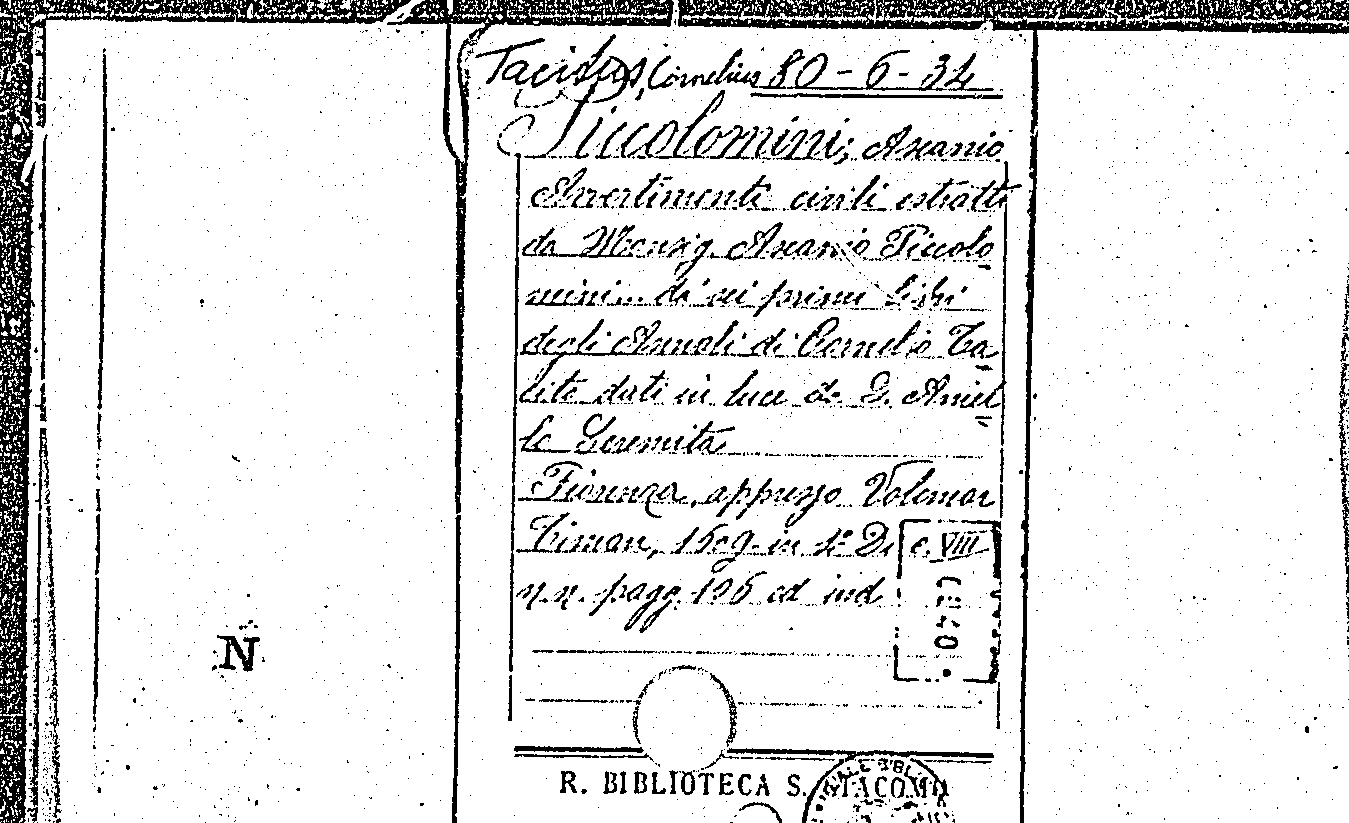 Tacitus, Cornelius 80-6-34
Piccolomini, Ascanio
Avvertimenti civili estratti
da Monsig. Ascanio Piccolo
mini... da' sei primi libri
degli Annali di Cornelio Ta
cito dati in luce da D. Aniel
lo
Fiorenza, appresso Volcmar
Timan, 1609. in 4º Di c. VIII
n.n. pagg. 196 ed ind
N
R. BIBLIOTECA S. GIACOMO